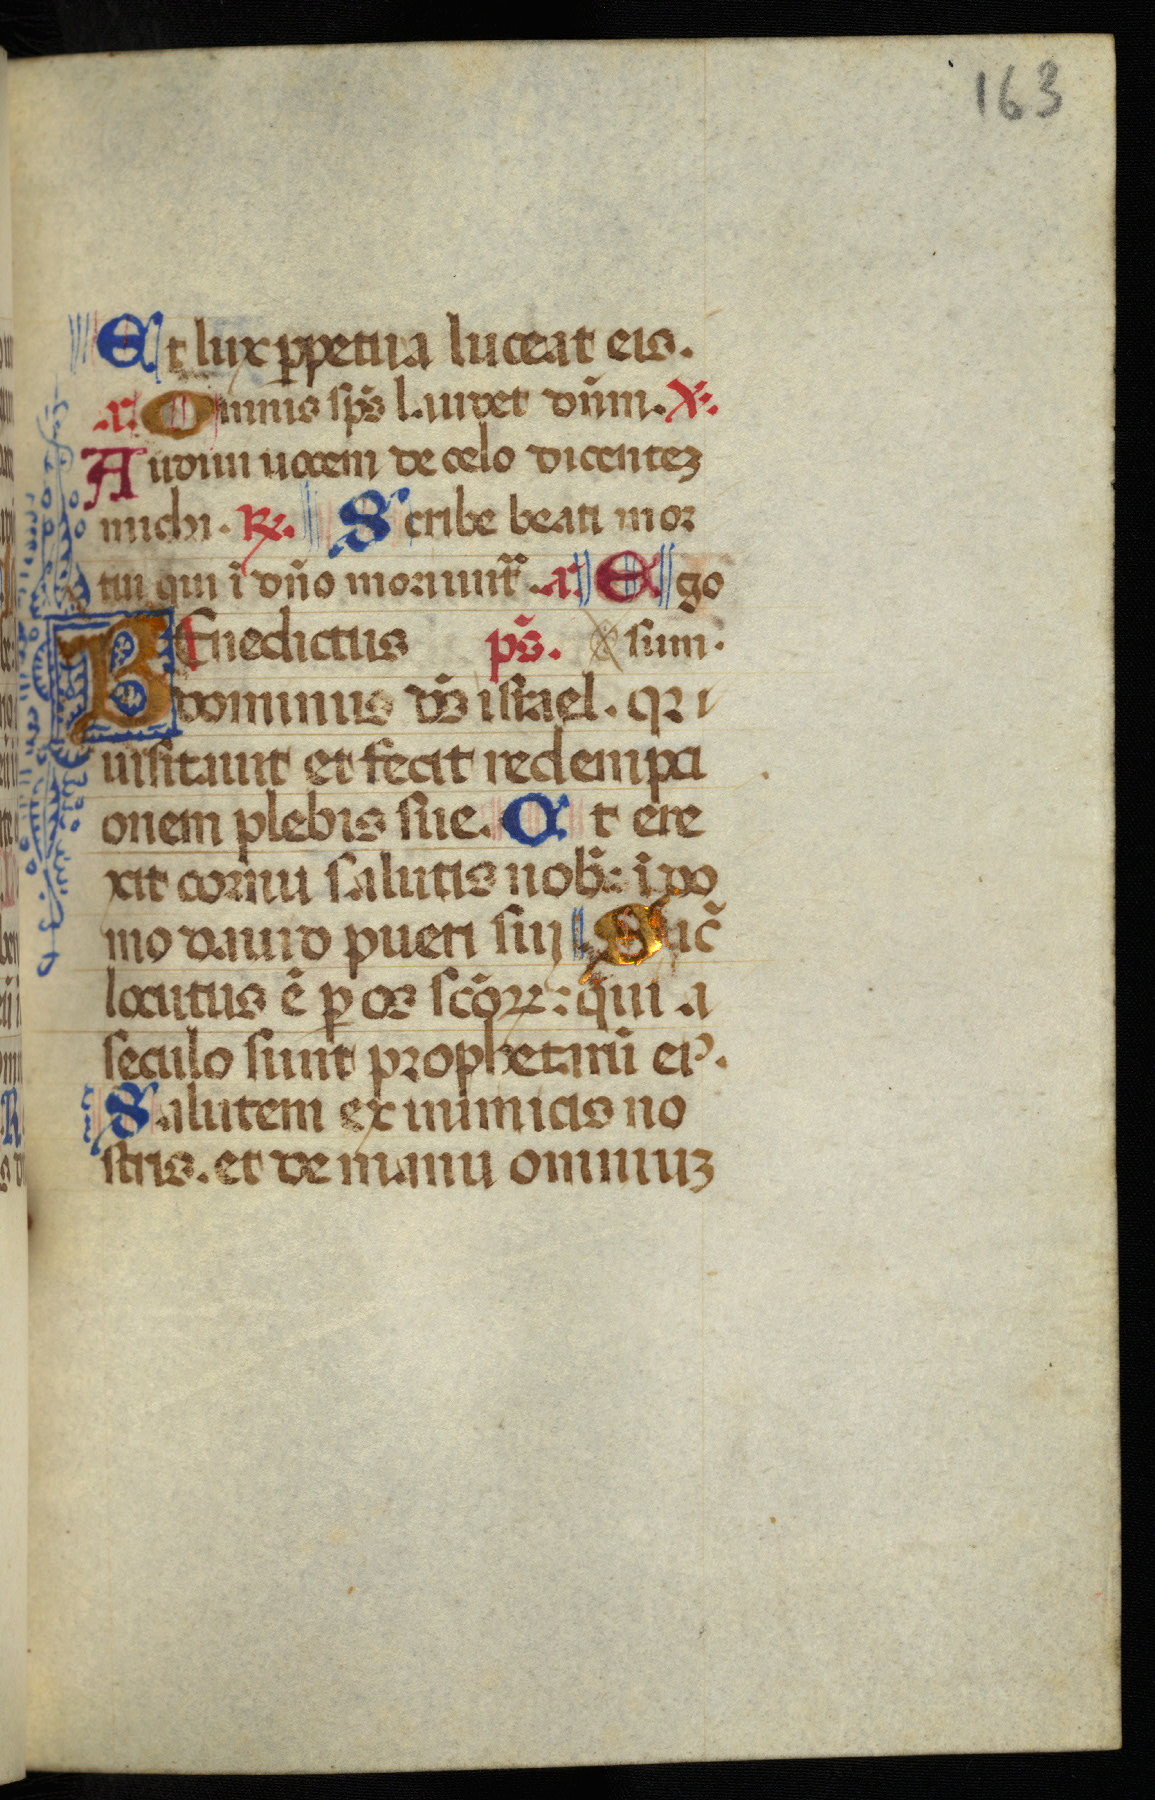 163
Et lux ꝑpetua luceat eis.
a. Omnis sp̃s laudet dñm. ℣.
Audiui uocem de celo dicentez
michi. ℞. Scribe beati mor
tui qui ĩ dño moriunt᷑. a. Ego
BEnedictus ps̃. sum.
dominus ds̃ israel. qꝛ i
uisitauit et fecit redempti
onem plebis sue. Et ere
xit cornu salutis nob̃: ĩ do
mo dauid pueri sui Sic̃
locutus ẽ ꝑ os sc̃oꝝ: qui a
seculo sunt prophetarũ eiꝰ.
Salutem ex inimicis no
stris. et de manu omniuz